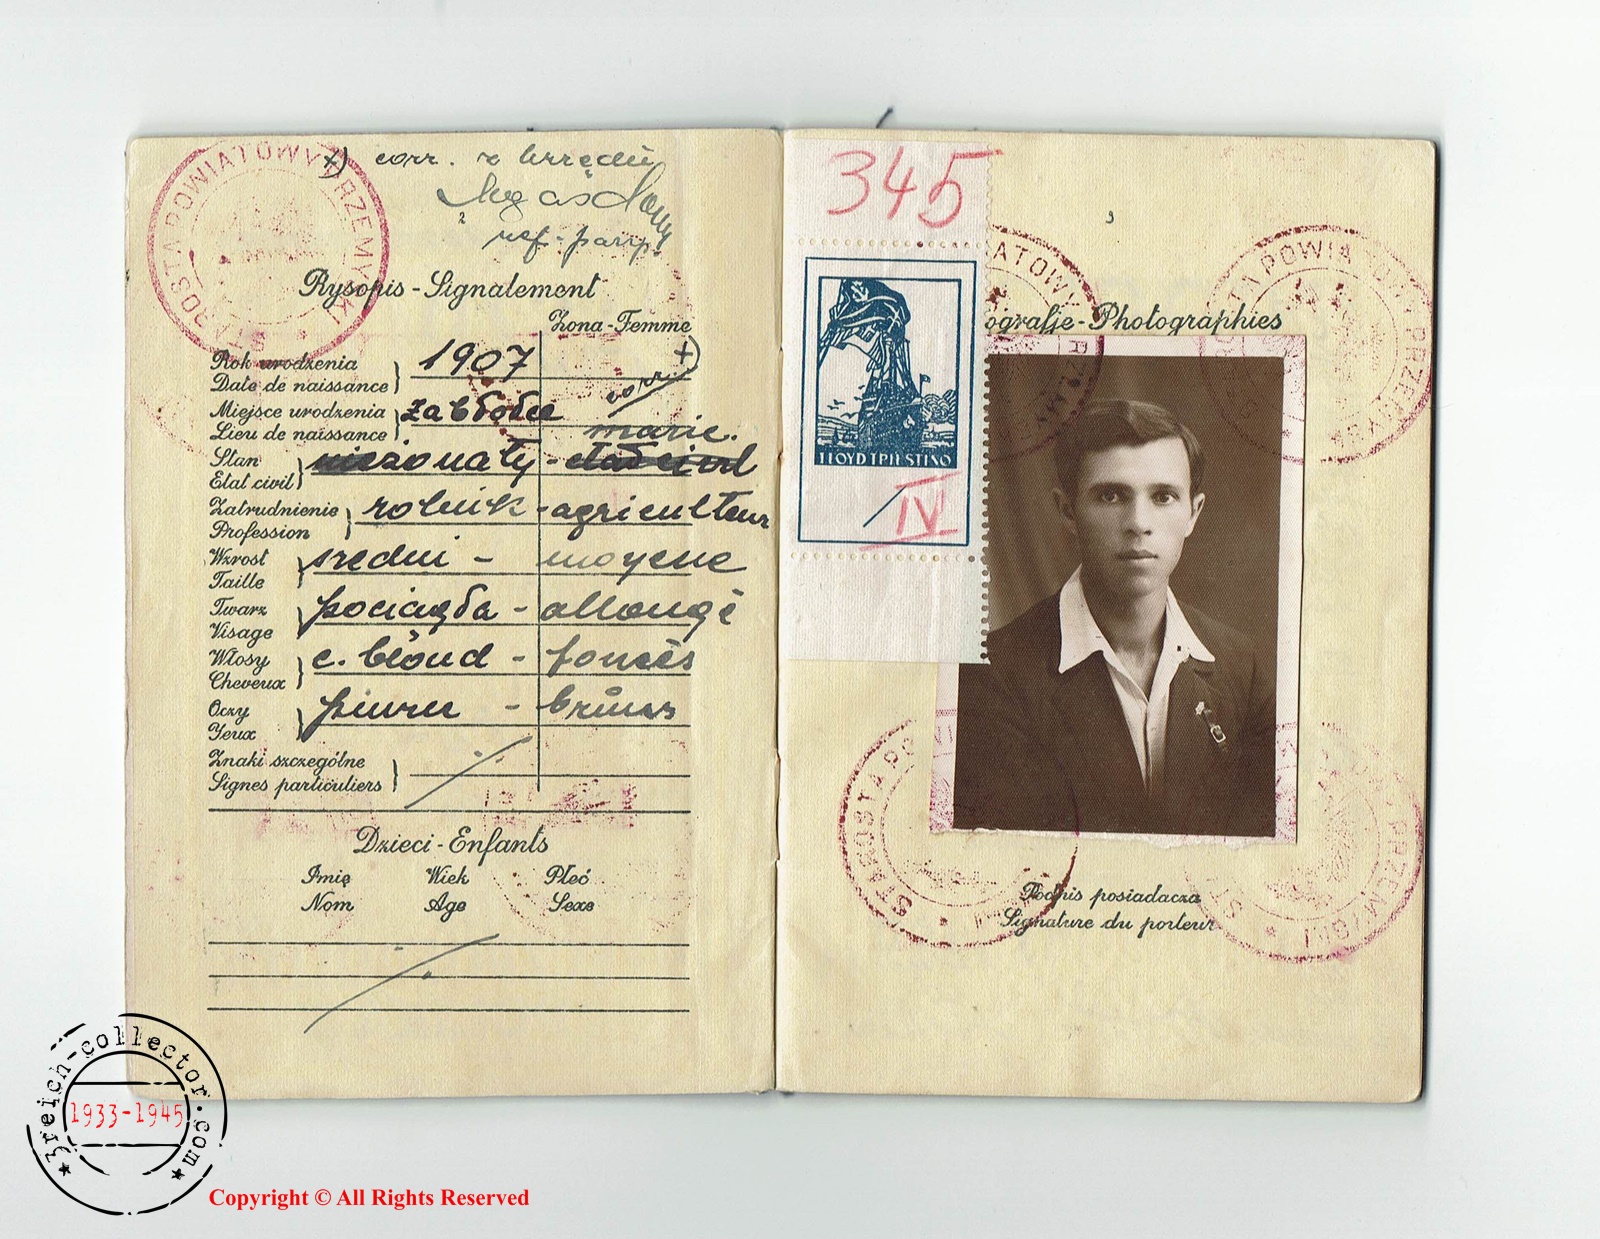 STAROSTA POWIATOWY PRZEMYSKI
x) corr. z urzędu
ref. paszp.
2
Rysopis - Signalement
Żona - Femme
Rok urodzenia
Date de naissance
1907
x)
corr.
Miejsce urodzenia
Lieu de naissance
Zabłotce
marié.
Stan
Etat civil
żonaty -
Zatrudnienie
Profession
rolnik - agriculteur
Wzrost
Taille
średni - moyene
Twarz
Visage
pociągła - allongé
Włosy
Cheveux
c. blond - foncés
Oczy
Yeux
piwne - bruns
Znaki szczególne
Signes particuliers
Dzieci - Enfants
Imię Wiek Płeć
Nom Age Sexe
345
LLOYD TRIESTINO
IV
3
ografje - Photographies
ATOWY
STA POWIATOWY PRZEMYSK
STAROSTA PO
PRZEMYSKI
Podpis posiadacza
Signature du porteur
3reich-collector.com
1933-1945
Copyright © All Rights Reserved